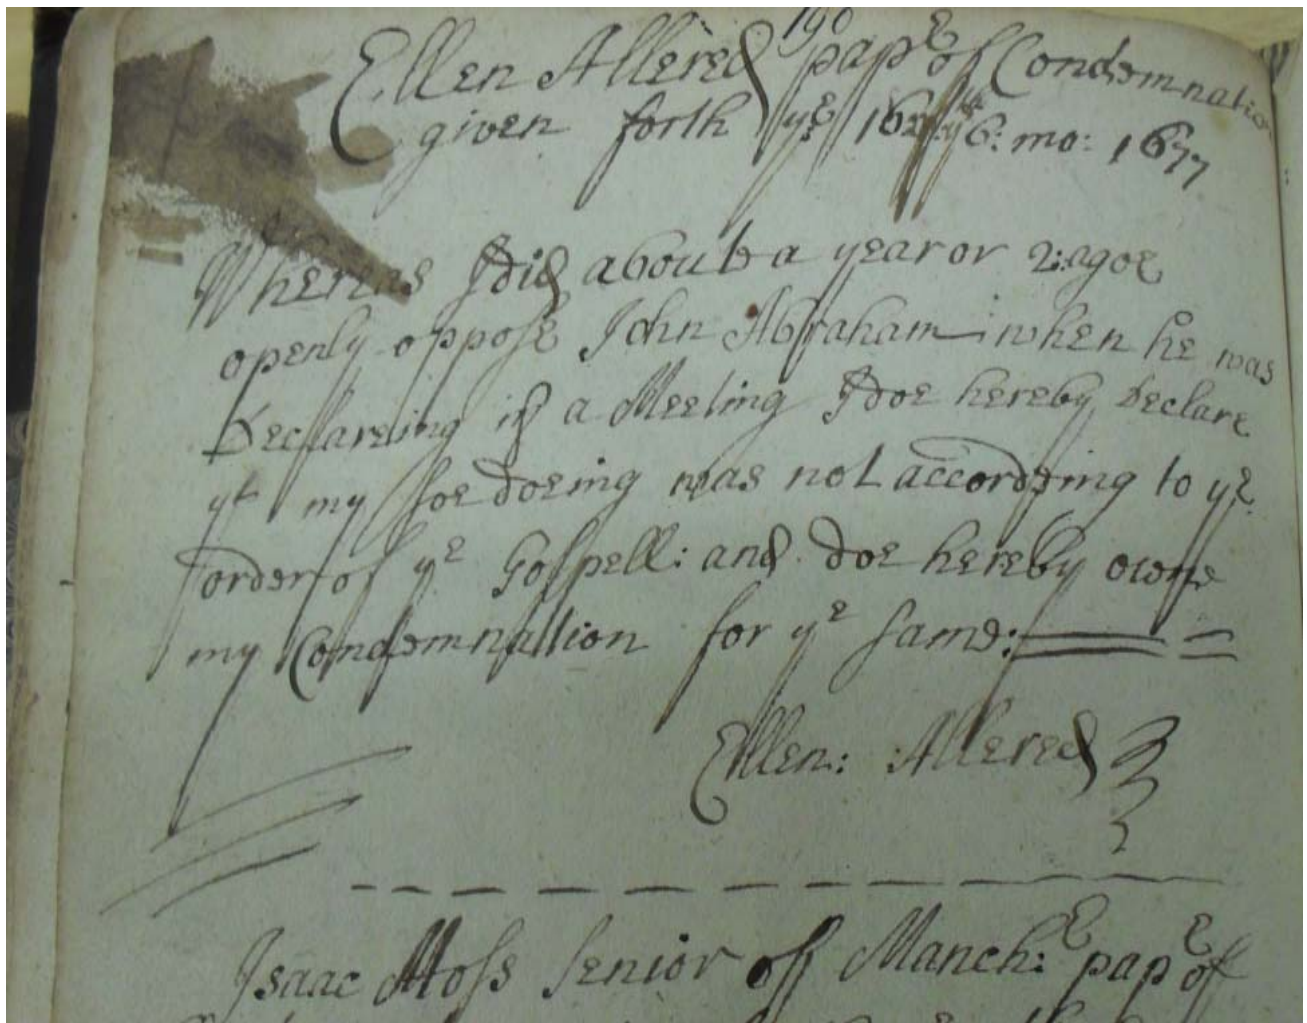 190
Ellen Allered papʳ of Condemnation
given forth yᵉ 16: yᵉ 6: mo: 1677
Whereas I did about a year or 2: agoe
openly oppose John Abraham when he was
Declareing in a Meeting I doe hereby Declare
yᵗ my soe doeing was not according to yᵉ
order of yᵉ Gospell: and doe hereby owne
my Condemnation for yᵉ same:
Ellen: Allered
Isaac Moss senior of Manchʳ: papʳ of